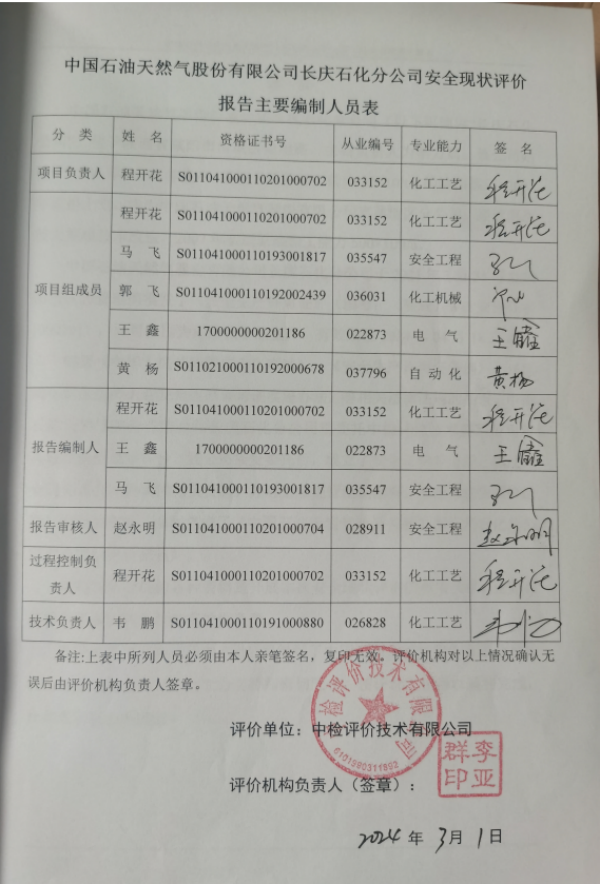 中国石油天然气股份有限公司长庆石化分公司安全现状评价
报告主要编制人员表
分 类 姓 名 资格证书号 从业编号 专业能力 签 名
项目负责人 程开花 S011041000110201000702 033152 化工工艺 程开花
项目组成员 程开花 S011041000110201000702 033152 化工工艺 程开花
马 飞 S011041000110193001817 035547 安全工程
郭 飞 S011041000110192002439 036031 化工机械
王 鑫 1700000000201186 022873 电 气 王鑫
黄 杨 S011021000110192000678 037796 自 动 化 黄杨
报告编制人 程开花 S011041000110201000702 033152 化工工艺 程开花
王 鑫 1700000000201186 022873 电 气 王鑫
马 飞 S011041000110193001817 035547 安全工程
报告审核人 赵永明 S011041000110201000704 028911 安全工程 赵永明
过程控制负
责人 程开花 S011041000110201000702 033152 化工工艺 程开花
技术负责人 韦 鹏 S011041000110191000880 026828 化工工艺
备注:上表中所列人员必须由本人亲笔签名，复印无效。评价机构对以上情况确认无
误后由评价机构负责人签章。
评价单位：中检评价技术有限公司
中检评价技术有限公司
评价机构负责人（签章）：
李亚
群印
2024 年 3 月 1 日